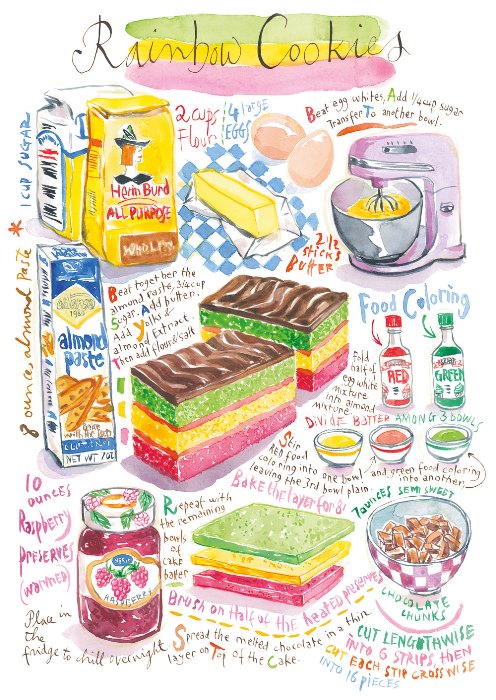 Rainbow Cookies
* 1 CUP SUGAR
8 ounce almond Paste
2 cups
Flour
4 large
EGGS
Beat egg whites, Add 1/4 cup sugar
Transfer To another bowl.
Herin Burd
ALL PURPOSE
2 1/2
STICKS
BUTTER
Beat together the
almond paste, 3/4 cup
Sugar. Add butter.
Add yolks &
almond Extract
Then add flour & salt
almond
paste
NET WT 7OZ
Food Coloring
RED
GREEN
fold
half of
egg white
mixture
into almond
mixture.
DIVIDE BATTER AMONG 3 BOWLS
Stir
RED food
coloring into one bowl
and green food coloring
into another,
leaving the 3rd bowl plain.
Bake the layer for 8
10
OUNCES
Raspberry
PRESERVES
(warmed)
RASPBERRY
Repeat with
the remaining
bowls
of
cake
batter
7 ounces SEMI SWEET
CHOCOLATE
CHUNKS
Brush on Half of the heated preserves
Place in
the
fridge to chill overnight
Spread the melted chocolate in a thin
layer on Top of the Cake.
CUT LENGTHWISE
INTO 6 STRIPS, THEN
CUT EACH STIP CROSSWISE
INTO 16 PIECES